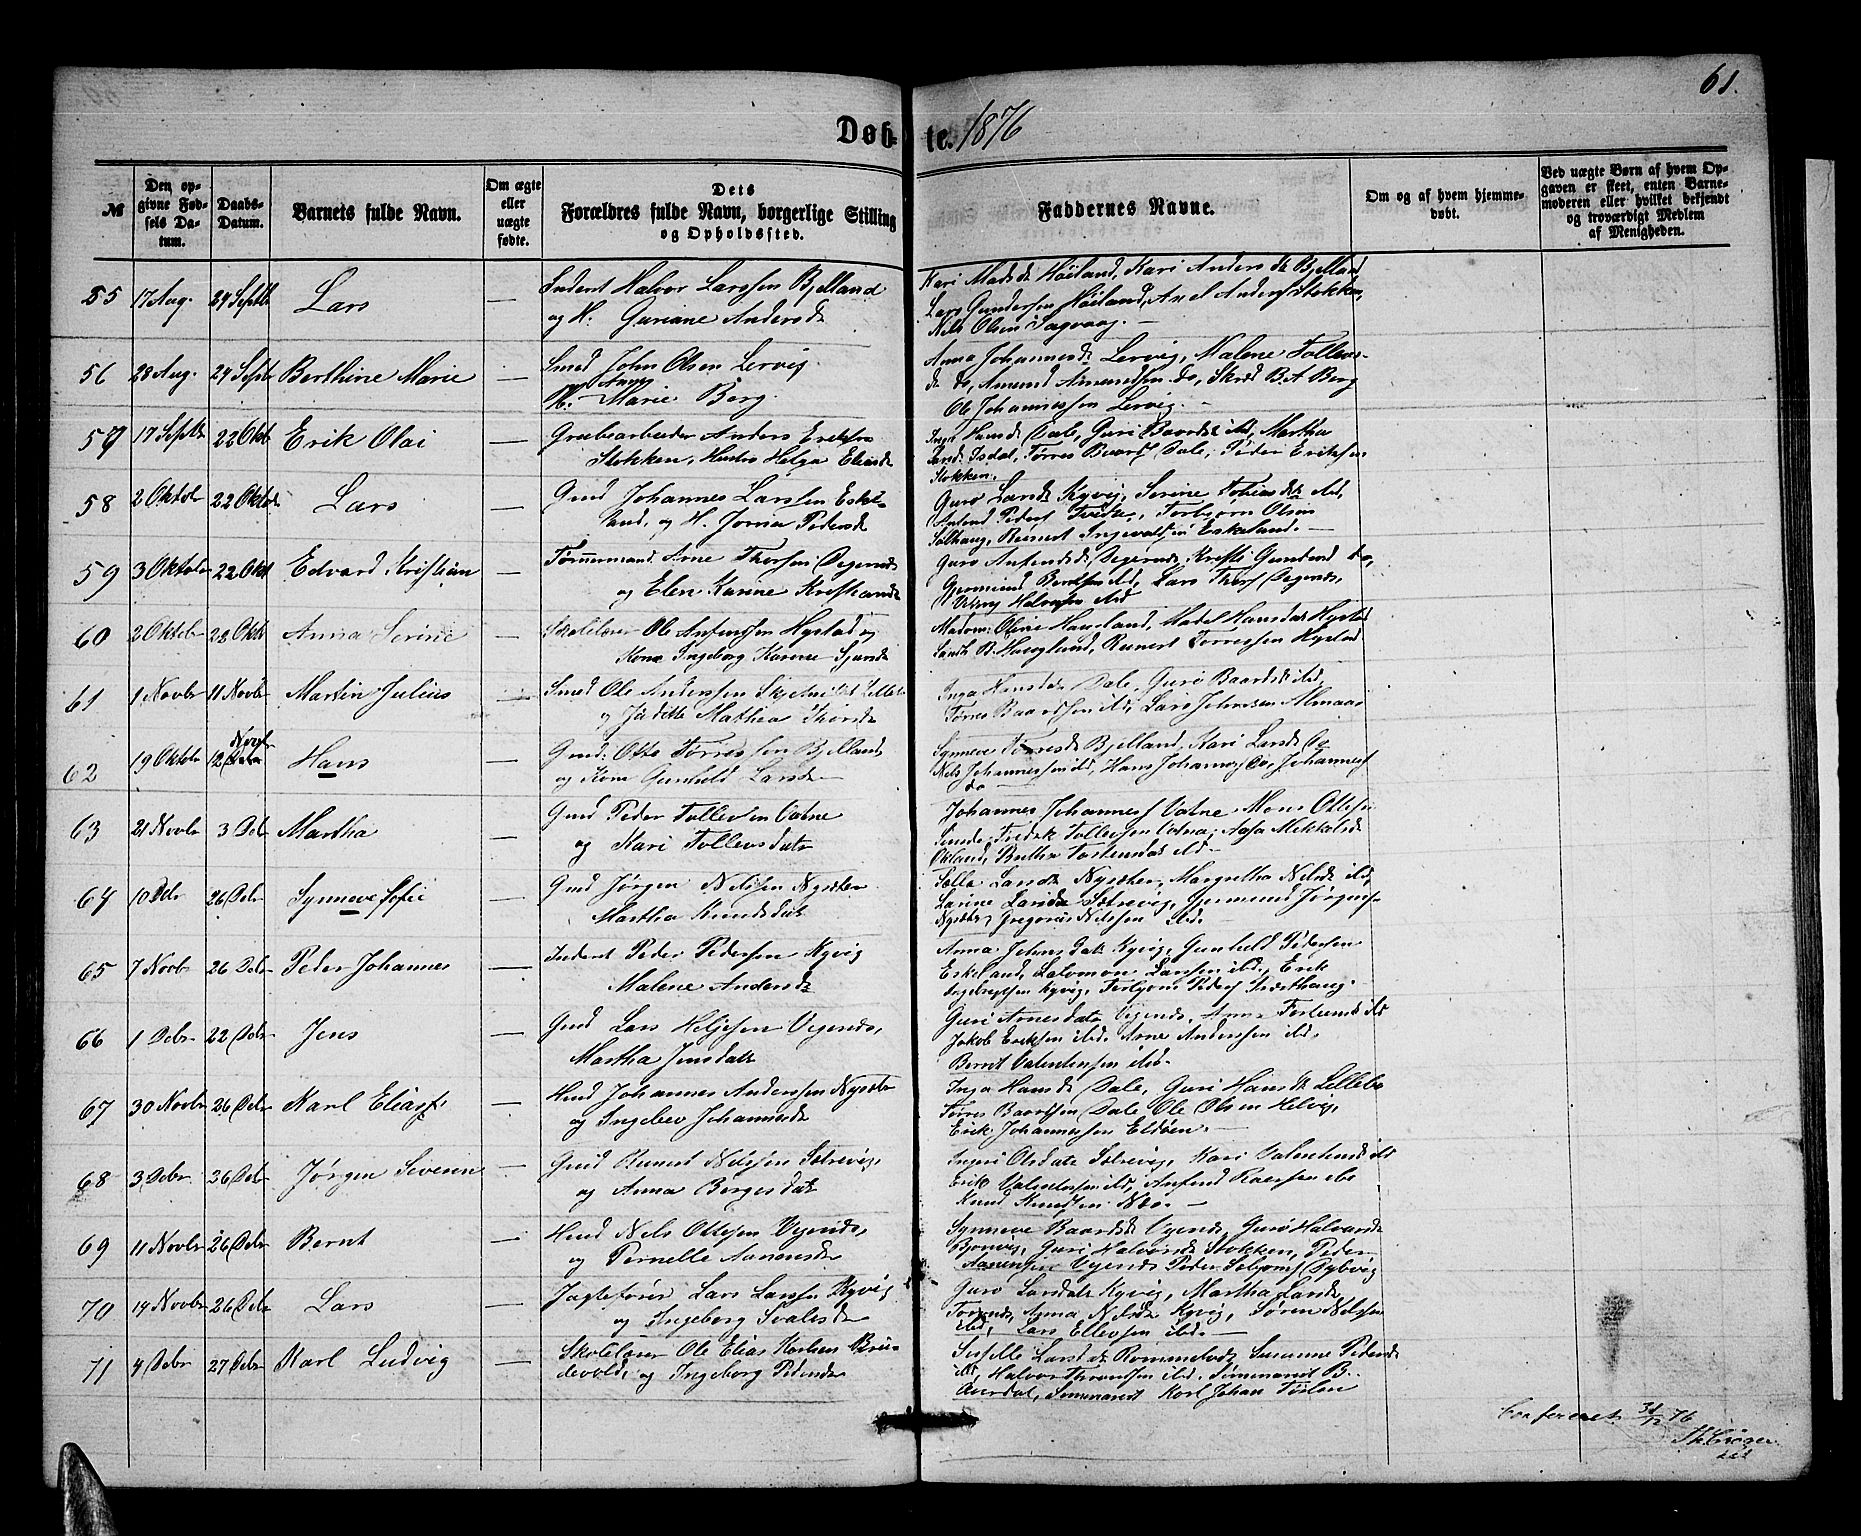 61.
Døb-te. 1876
№
Den op-
givne Fød-
sels Da-
tum.
Daabs-
Datum.
Barnets fulde Navn.
Om ægte
eller
uægte
fødte.
Dets
Forældres fulde Navn, borgerlige Stilling
og Opholdssted.
Faddernes Navne.
Om og af hvem hjemme-
døbt.
Ved uægte Børn af hvem Op-
gaven er skeet, enten Barne-
moderen eller hvilket bekjendt
og troværdigt Medlem
af Menigheden.
55 17 Aug. 24 Septb Lars — Inderst Halvor Larssen Bjelland
og H. Guriane Andersd
Kari Madsd Høiland, Kari Andersd Bjelland
Lars Gundersen Høiland, Axel Anders Stokken,
Nils Olsen Sagvaag. —
56 28 Aug. 24 Septb Berthine Marie — Smed John Olsen Lervig
H. Anna Marie Berg.
Anna Johannesd Lervig, Malene Tollevs-
d do, Amund Amundsen do, Skrd B. A Berg
Ole Johannessen Lervig. —
57 17 Septb 22 Okt Erik Olai — Grubearbeider Anders Eriksen
Stokken, Hustro Helga Eliasd
Inga Hansd Dale, Guri Baardsd ibd, Martha
Isdal, Tørres Baards Dale, Peder Eriksen
Stokken.
58 2 Oktobr 22 Oktobr Lars — Gmd Johannes Larssen Eske-
land, og H. Jorina Pedersd
Guro Larsd Kyvig, Serine Tobiasd ibd,
Anfind Peders Tveite, Torbjørn Olsen
Solhaug, Reinert Ingevaldsen Eskeland. —
59 3 Oktobr 22 Okt Edvard Kristian — Tømmermand Arne Thorsen Degernes
og Elen Karine Kristiansd
Guro Anfindsd Degernes, Kristi do,
Gjermund Berntsen ibd, Lars Thors Degernes,
Halvorsen ibd
60 2 Oktobr 28 Oktb Anna Serine — Skolelærer Ole Anfindssen Hystad og
Kone Ingeborg Karine Sjursd
Madam Oline Haugland, Madel Hansdat Hystad
B. Haugland, Reinert Torressen Hystad
61 1 Novbr 11 Novbr Martin Julius — Smed Ole Anderssen
og Jadette Mathea Thorsd
Inga Hansdat Dale, Guro Baardsd ibd,
Tørres Baardssen ibd, Lars Johnsen Almaas
62 19 Oktobr 12 Novbr Hans — Gmd: Otto Tørressen Bjelland
og Kone Gunhild Larsd —
Synneve Tørresd Bjelland, Kari Larsd do
Nils Johannessen ibd, Hans Johannes do, Johannes
do —
63 21 Novbr 3 Debr Martha — Gmd Peder Tollevsen Vatne
og Kari Tollevsdatr
Johannes Johannes Vatne Mons Ottesen
Tollevsen Vatne, Aasa Mikkelsd
Økland, Brita Torkensdat ibd —
64 10 Debr 26 Debr Synneve Sofie — Gmd Jørgen Nilssen Nysæter
Martha Knudsdat
Larsd Nysæter, Margretha Nilsd ibd,
Larine Larsd Sætrevig, Gjermund Jørgens-
Nysæter, Gregorius Nilssen ibd. —
65 7 Novb 26 Debr Peder Johannes — Inderst Peder Pedersen Kyvig
Malene Andersd
Anna Johnsdat Kyvig, Gunhild Pedersen
Eskeland, Salomon Larssen ibd., Erik
Ingebrigtsen Kyvig, Torbjørn Peders
66 1 Debr 22 Debr Jens — Gmd Lars Heljesen Vegernes,
Martha Jensdatr
Guri Arnesdatr Vegernes,
Jakob Eriksen ibd. Arne Anderssen ibd.
Berent Valentinsen ibd.
67 30 Novbr 26 Debr Karl Elias — Hmd Johannes Anderssen Nysætr
og Ingebor Johannesd
Inga Hansd Dale, Guri Hansd Lillebø
Tørres Baardsen Dale Ole Olsen Helvig,
Erik Johannessen Eldøen. —
68 3 Debr 26 Debr Jørgen Severin — Gmd Reinert Nilssen Sætrevig,
og Anna Børgesdatr
Ingeri Olsdatr Sætrevig, Kari Valentinsd ibd
Erik Valentinsen ibd, Anfind
Knud Knudsen —
69 11 Novbr 26 Debr Bernt — Hmd Nels Ottesen Vegernes,
og Pernelle Aanensd
Synneve Baardsd Vegernes, Guro Halvardsd
Guri Halvorsd Stokken, Peder
Aanensen Vegernes Peder Dybvig
70 14 Novbr 26 Debr Lars — Jagtefører Lars Larssen Kyvig
og Ingeborg
Guro Larsdatr Kyvig, Martha Larsd
Anna Nilsd Kyvig, Søren Nilssen
ibd, Lars Ellevsen ibd. —
71 4 Debr 27 Debr Karl Ludvig — Skolelærer Ole Elias Karlsen Brei-
devold, og Ingeborg Pedersd
Sissille Larsdat Rommetvedt Susanne Pedersd
ibd, Halvor ibd. Sømmand B.
Aursdal, Sømmand Karl Johan
Confereret 31/12 76